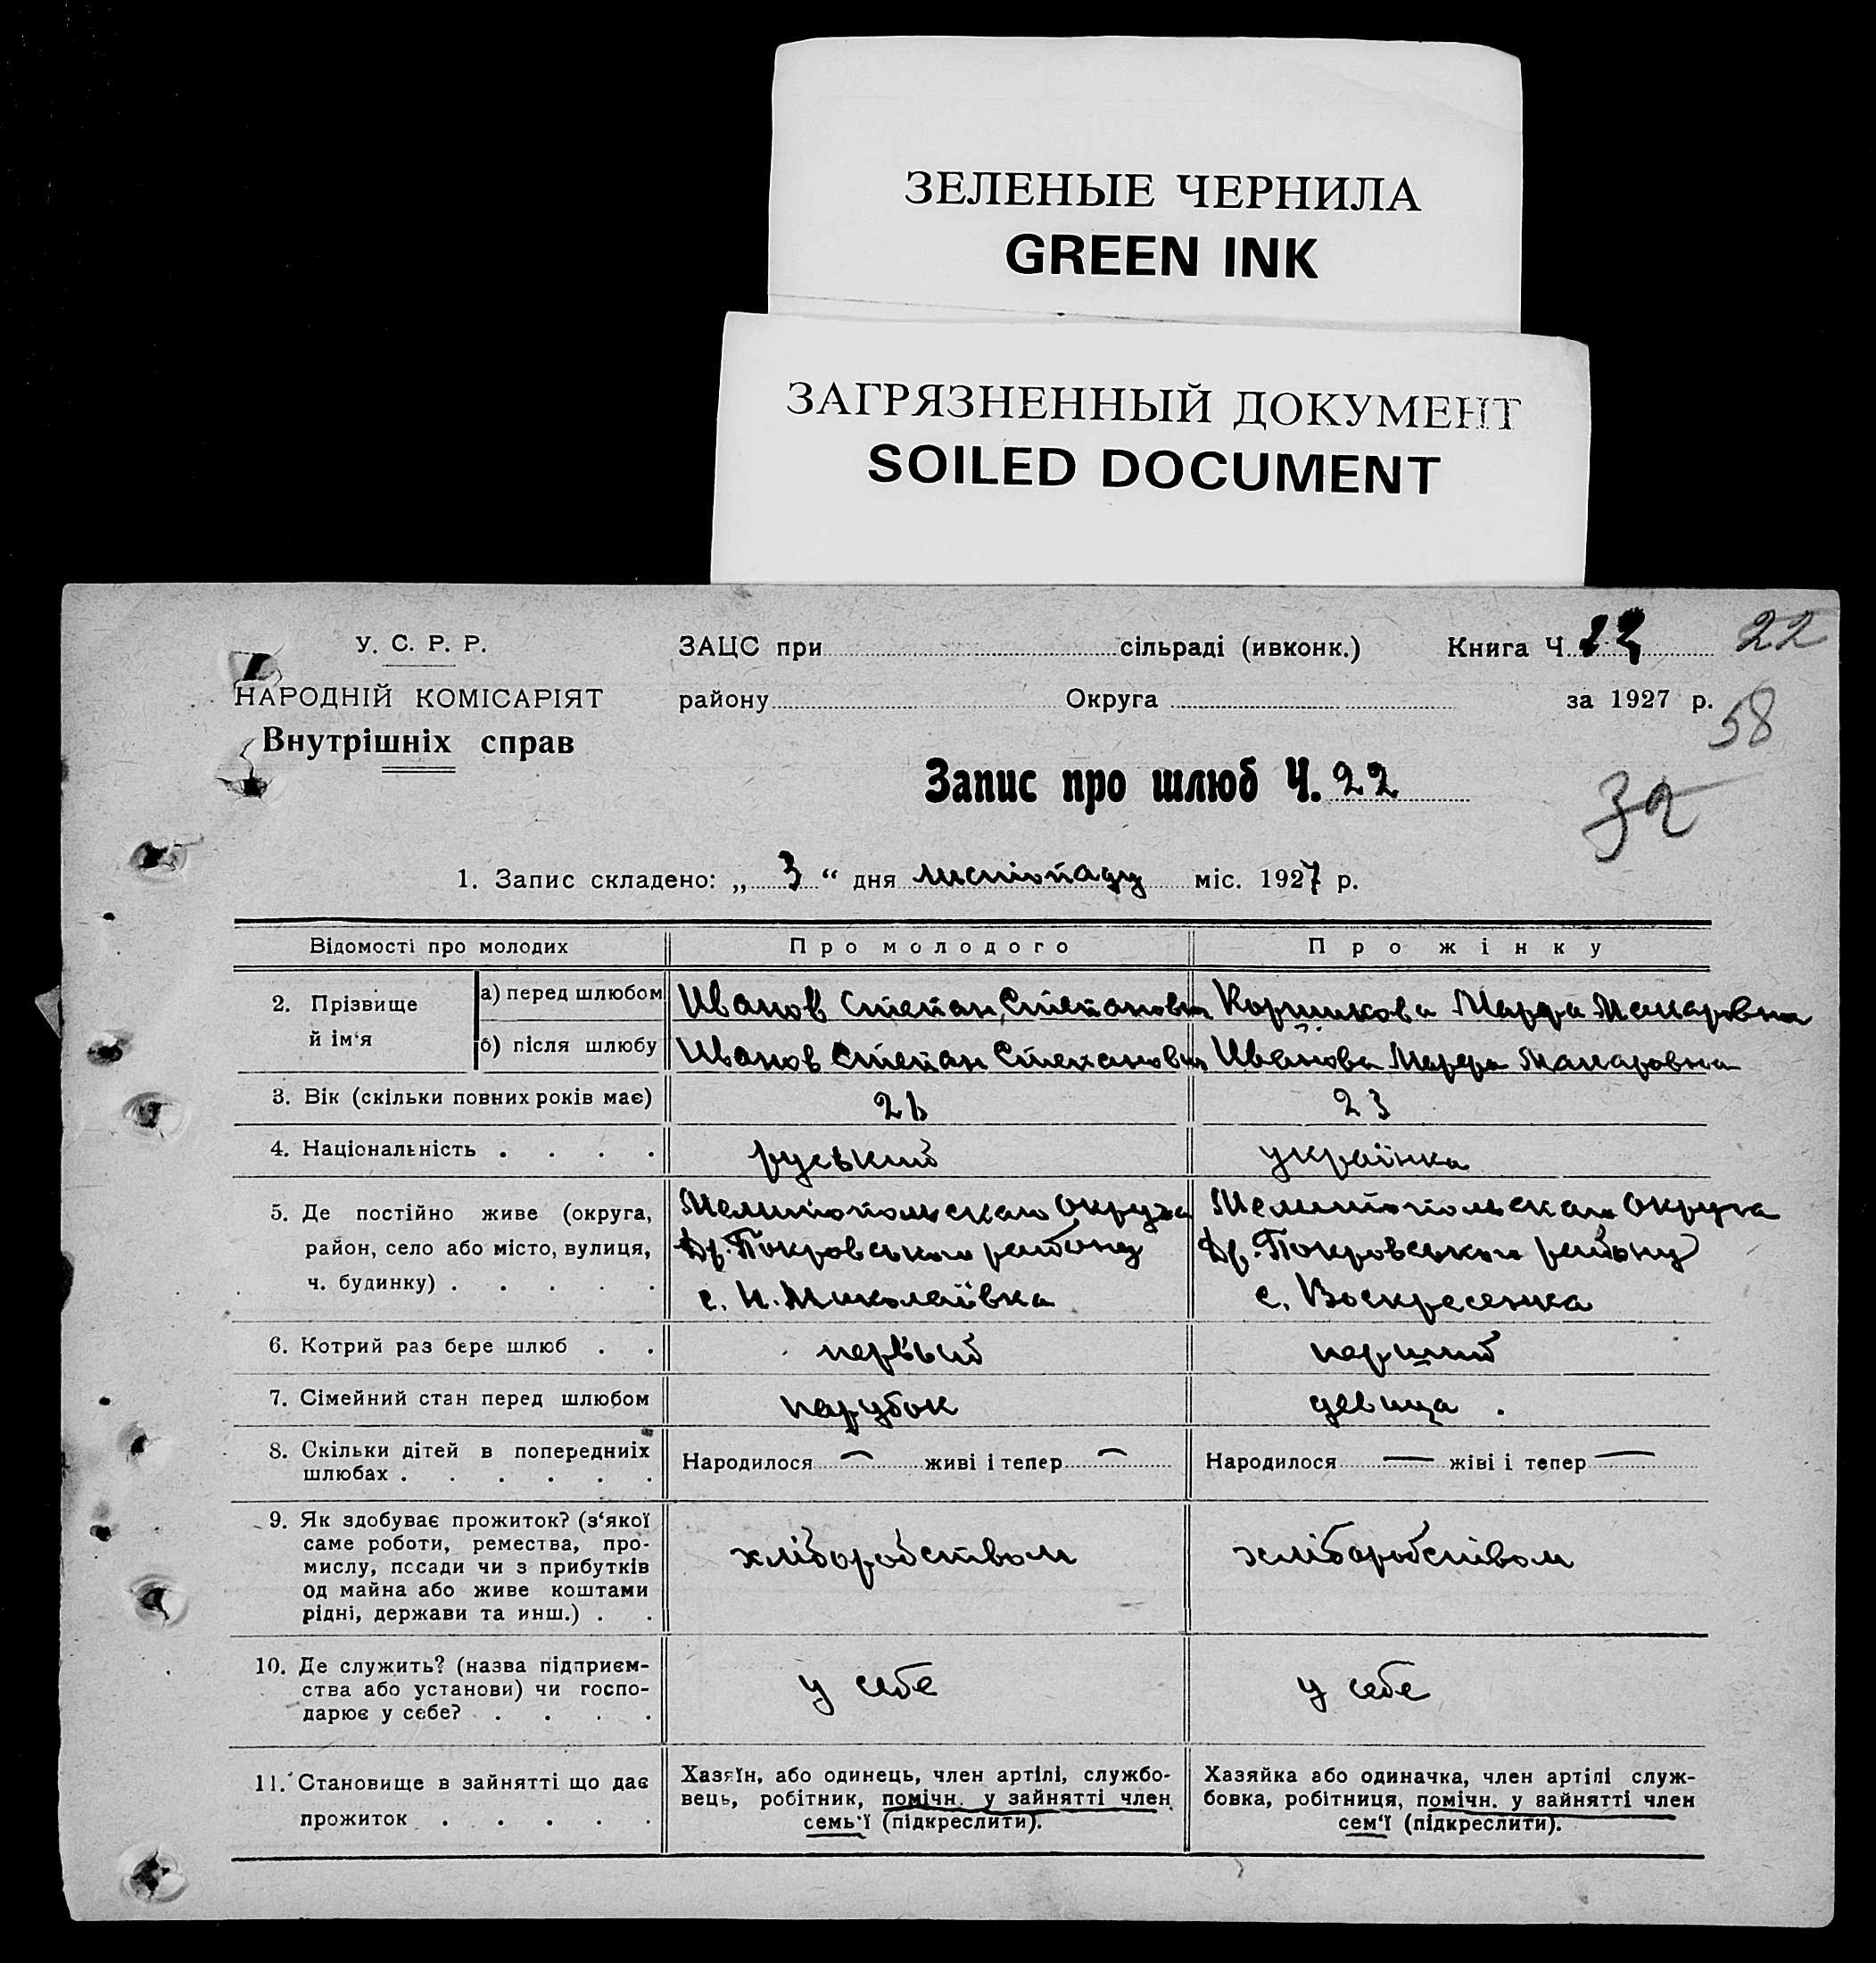 ЗЕЛЕНЫЕ ЧЕРНИЛА
GREEN INK
ЗАГРЯЗНЕННЫЙ ДОКУМЕНТ
SOILED DOCUMENT
У. С. Р. Р.
НАРОДНІЙ КОМІСАРІЯТ
Внутрішніх справ
ЗАЦС при сільраді (ивконк.) Книга Ч. 22
району Округа за 1927 р.
58
Запис про шлюб Ч. 22
32
1. Запис складено: „ 3 “ дня листопаду міс. 1927 р.
Відомості про молодих Про молодого Про жінку
2. Прізвище й ім‘я
а) перед шлюбом Иванов Степан Степанович Коршикова Марфа Макаровна
б) після шлюбу Иванов Степан Степанович Иванова Марфа Макаровна
3. Вік (скільки повних років має) 23
4. Національність . . . . руський українка
5. Де постійно живе (округа,
район, село або місто, вулиця,
ч. будинку) . . . . .
Мелитопольская Округа
Покровського району
с. Н. Миколаївка
Мелитопольская Округа
Покровського району
с. Воскресенка
6. Котрий раз бере шлюб . . первый перший
7. Сімейний стан перед шлюбом парубок девица .
8. Скільки дітей в попередниіх
шлюбах . . . . . .
Народилося — живі і тепер —
Народилося — жіві і тепер —
9. Як здобуває прожиток? (з‘якої
саме роботи, ремества, про-
мислу, посади чи з прибутків
од майна або живе коштами
рідні, держави та инш.) . .
хліборобством хліборобством
10. Де служить? (назва підприєм-
ства або установи) чи госпо-
дарює у себе? . . . .
у себе у себе
11. Становище в зайнятті що дає
прожиток . . . . .
Хазяїн, або одинець, член артілі, службо-
вець, робітник, помічн. у зайнятті член
семь‘ї (підкреслити).
Хазяйка або одиначка, член артілі служ-
бовка, робітниця, помічн. у зайнятті член
сем‘ї (підкреслити).